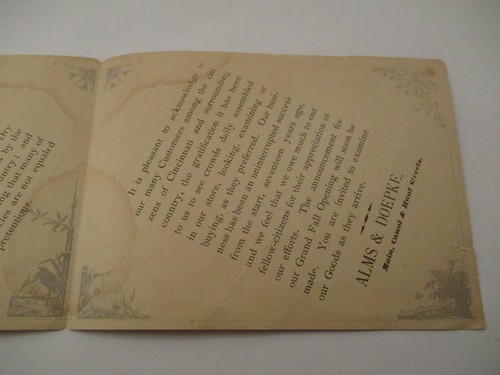 Dry
by the
untry; and
ing that many of
cles are not equaled
pretensions.
It is pleasant to acknowledge to
our many Customers among the citi
zens of Cincinnati and surrounding
country, the gratification it has been
to us to see crowds daily assembled
in our store, looking, examining or
buying, as they preferred. Our busi-
ness has been an uninterrupted success
from the start, seventeen years ago,
and we feel that we owe much to our
fellow-citizens for their appreciation of
our efforts. The announcement for
our Grand Fall Opening will soon be
made. You are invited to examine
our Goods as they arrive.
ALMS & DOEPKE,
Main, Canal & Hunt Streets.